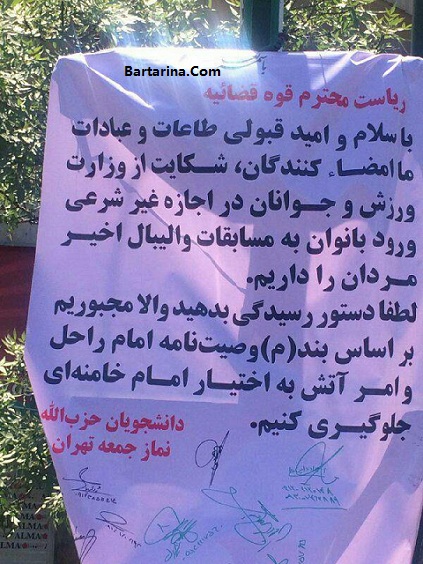 Bartarina.Com
ریاست محترم قوه قضائیه
با سلام و امید قبولی طاعات و عبادات
ما امضاء کنندگان، شکایت از وزارت
ورزش و جوانان در اجازه غیر شرعی
ورود بانوان به مسابقات والیبال اخیر
مردان را داریم.
لطفا دستور رسیدگی بدهید والا مجبوریم
بر اساس بند(م) وصیت‌نامه امام راحل
و امر آتش به اختیار امام خامنه‌ای
جلوگیری کنیم.
دانشجویان حزب‌الله
نماز جمعه تهران